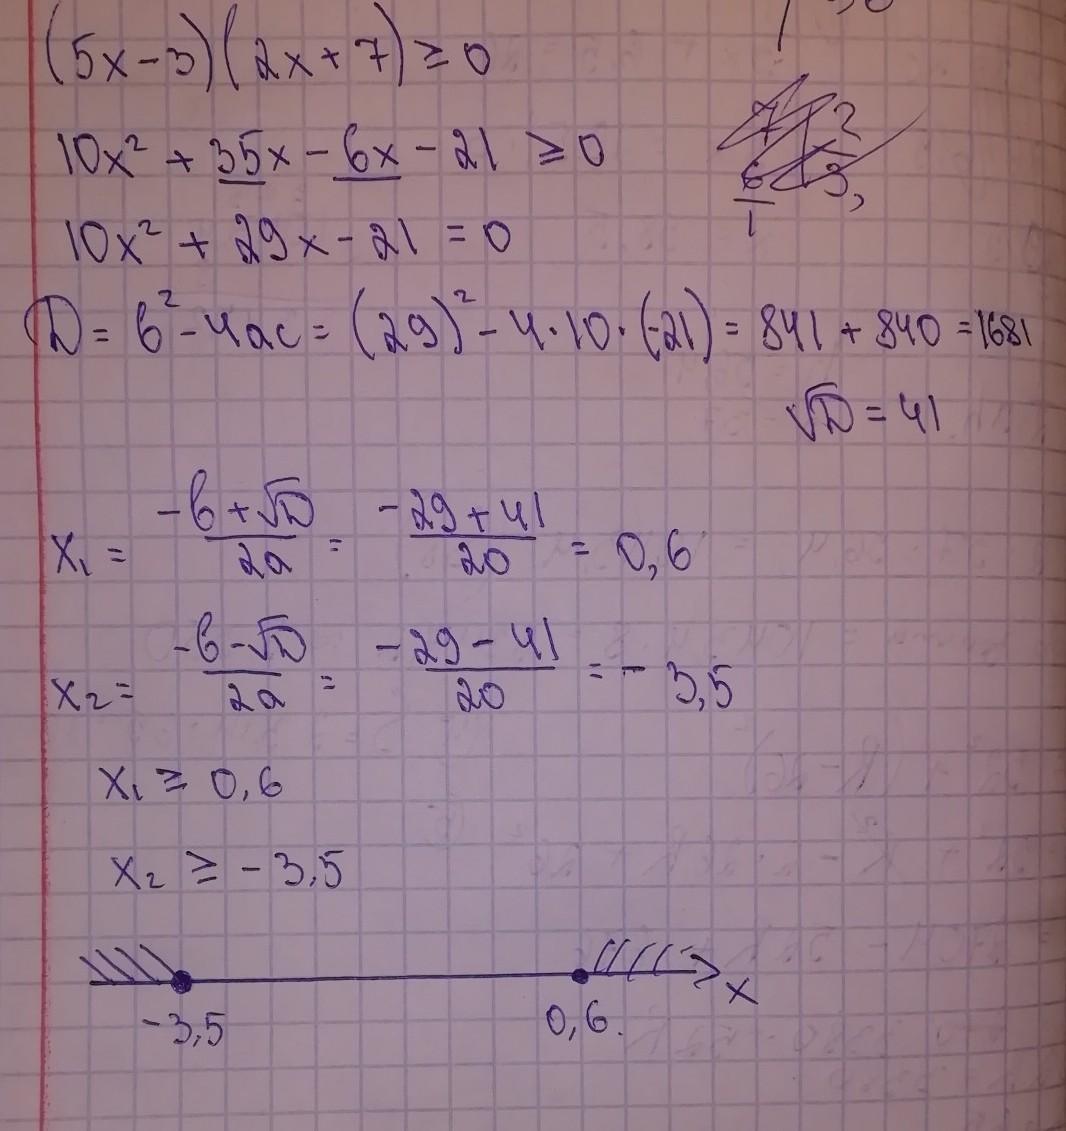 (5x-3)(2x+7) ≥ 0
10x² + 35x - 6x - 21 ≥ 0
10x² + 29x - 21 = 0
D = b² - 4ac = (29)² - 4·10·(-21) = 841 + 840 = 1681
√D = 41
x₁ = (-b+√D)/(2a) = (-29+41)/20 = 0,6
x₂ = (-b-√D)/(2a) = (-29-41)/20 = -3,5
x₁ ≥ 0,6
x₂ ≥ -3,5
-3,5 0,6. x